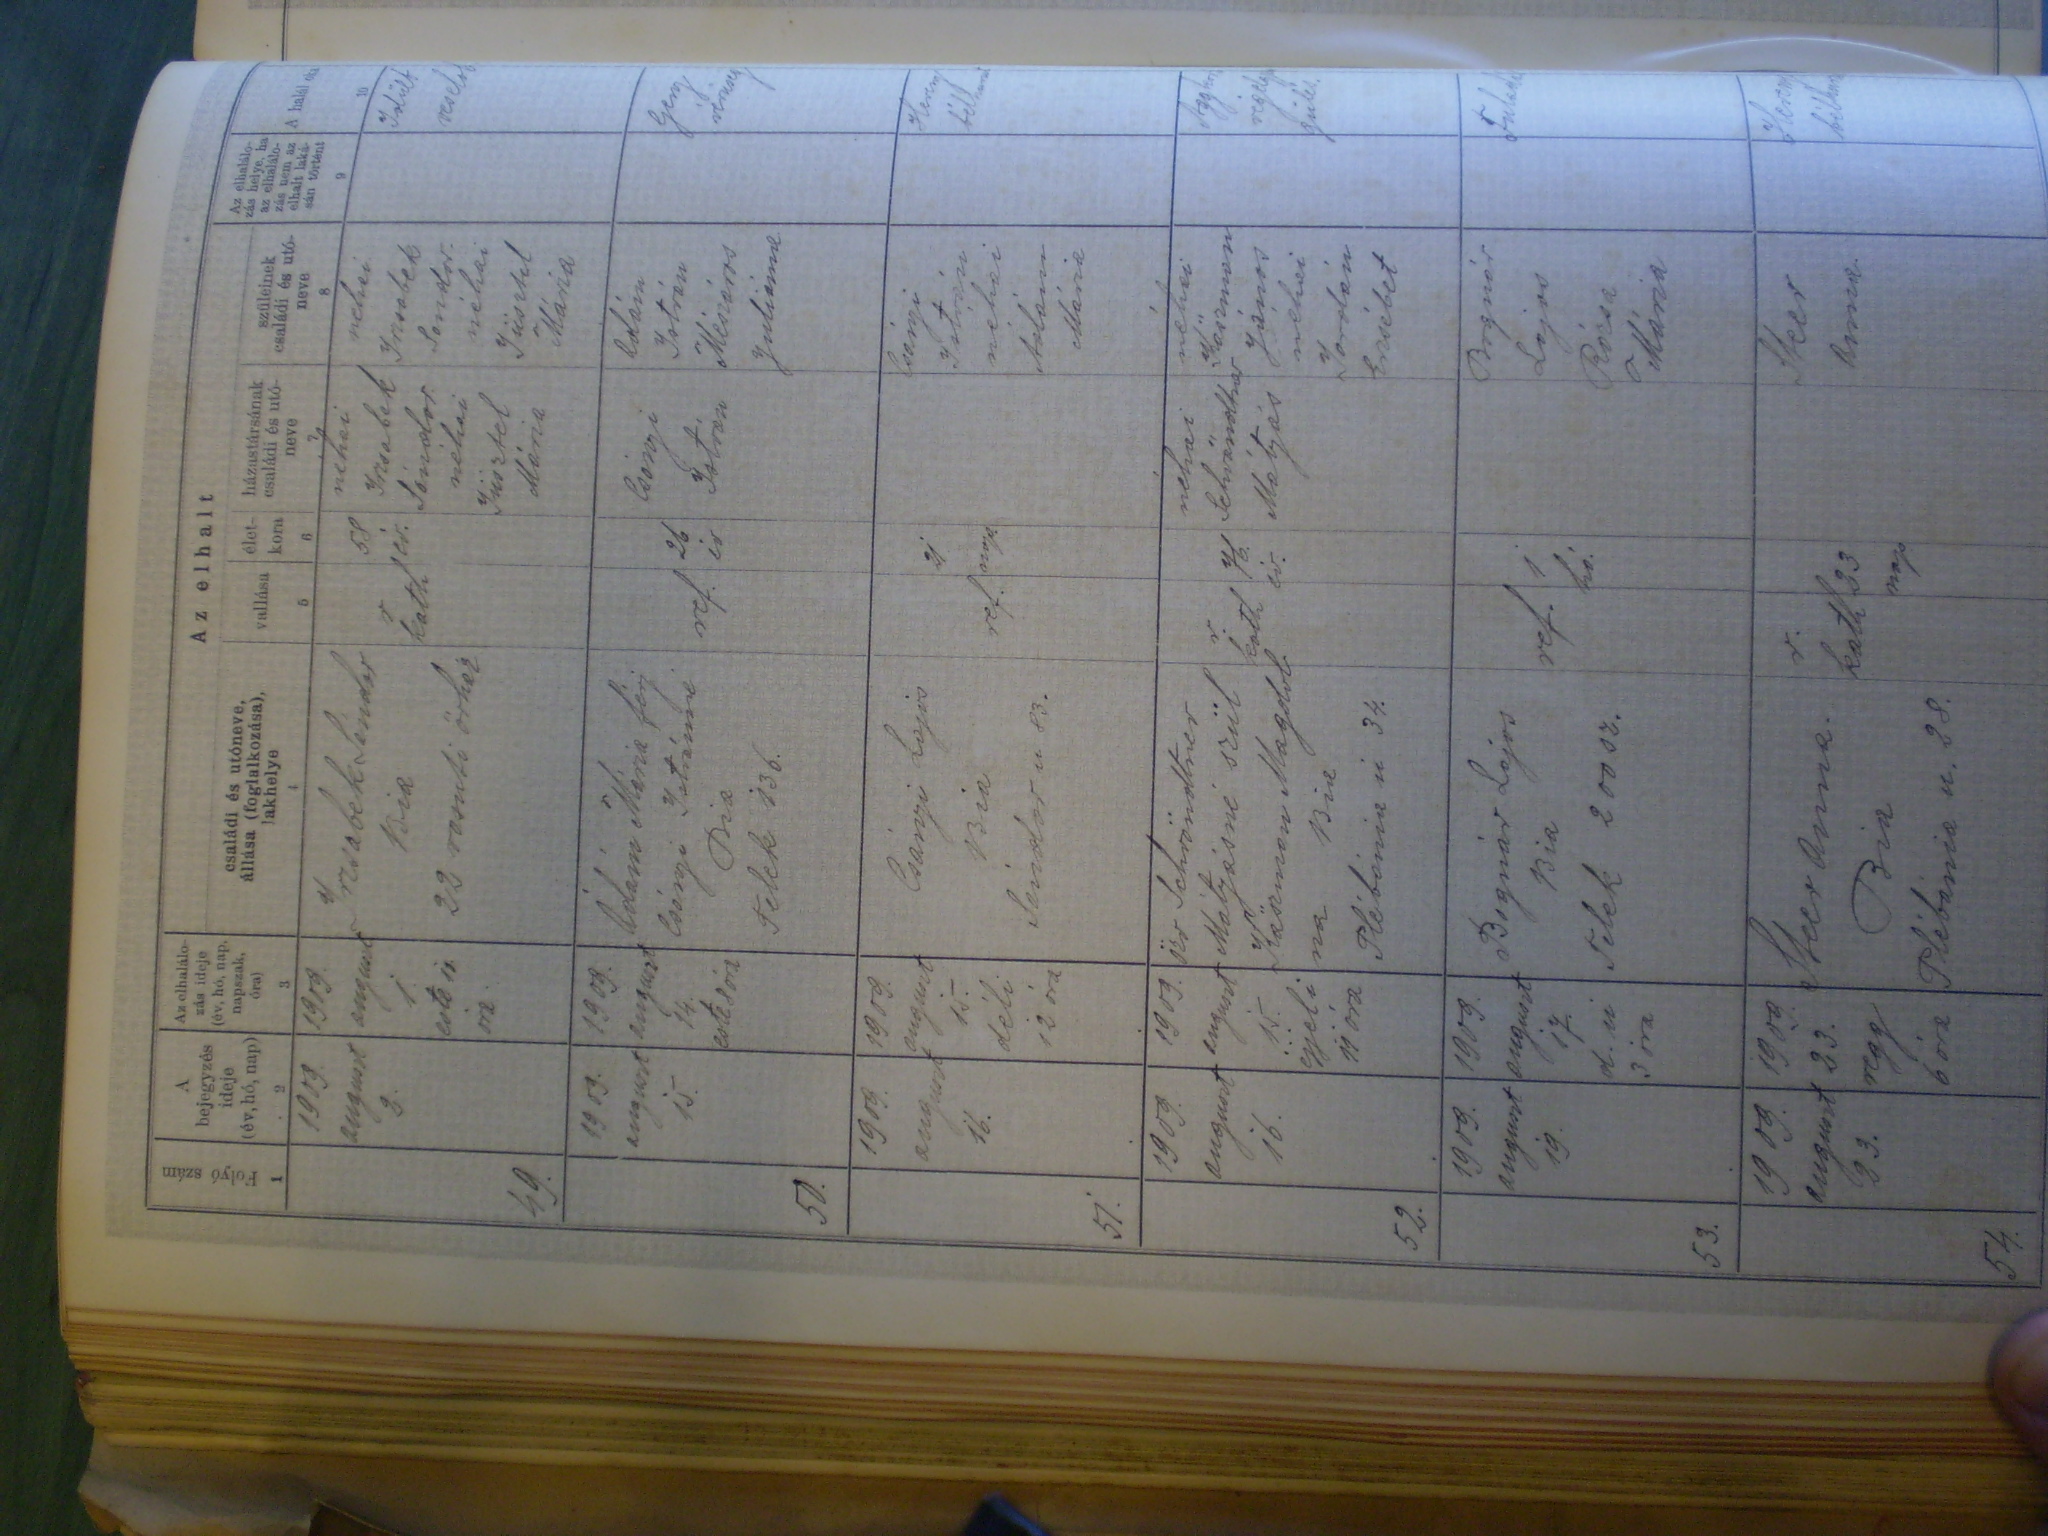 Az elhalt
Folyó szám
A bejegyzés ideje (év, hó, nap)
Az elhalálozás ideje (év, hó, nap, napszak, óra)
családi és utóneve, állása (foglalkozása), lakhelye
vallása
életkora
házastársának családi és utóneve
szüleinek családi és utóneve
Az elhalálozás helye, ha az elhálálozás nem az elhalt lakásán történt
A halál
1
2
3
4
5
6
7
8
9
10
49.
1909.
august
3.
1909.
august
1.
este
óra
Sándor
Bia
22 vasuti őrház
r
kath
58
év.
néhai
Sándor
néhai
Mária
néhai
Sándor
néhai
Mária
50.
1909.
august
15.
1909.
august
14.
este 8 óra
Ádám Mária férj
Csányi Istvánné
Bia
Telek 136.
ref.
26
év
Csányi
István
Ádám
István
Mészáros
Julianna
51.
1909.
august
16.
1909.
august
15.
déli
12 óra
Csányi Lajos
Bia
Sándor u 83.
ref.
21
nap
Csányi
István
néhai
Ádám
Mária
52.
1909.
august
16.
1909.
august
15.
éjjeli
11 óra
özv Schvöndtner
Mátyásné szül
Käszmon Magdol-
na Bia
Plébánia u 34.
r
kath
76.
év.
néhai
Schvöndtner
Mátyás
néhai
Käszmon
János
néhai
Zordán
Erzsébet
53.
1909.
august
19.
1909.
august
17.
d. u
3 óra
Bognár Lajos
Bia
Telek 200 sz.
ref.
1
hó.
Bognár
Lajos
Rózsa
Mária
54.
1909.
august
23.
1909.
23.
regg
6 óra
Steer Anna.
Bia
Plébánia u. 28.
r.
kath
23
nap
Steer
Anna.